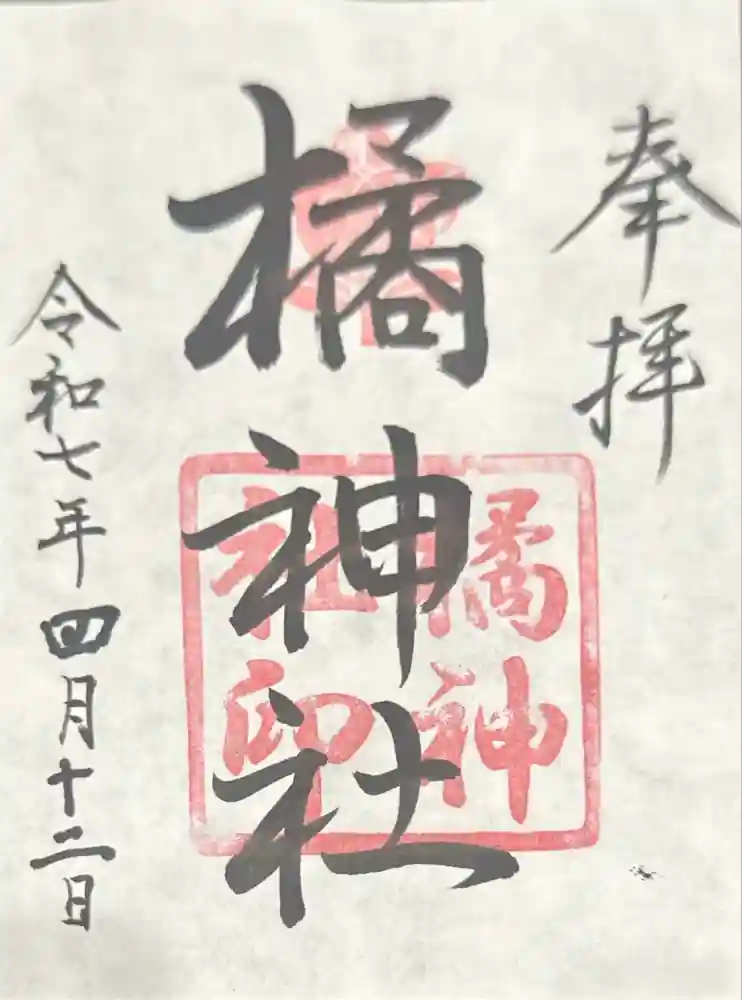 奉拝
橘神社
橘神社印
令和七年四月十二日